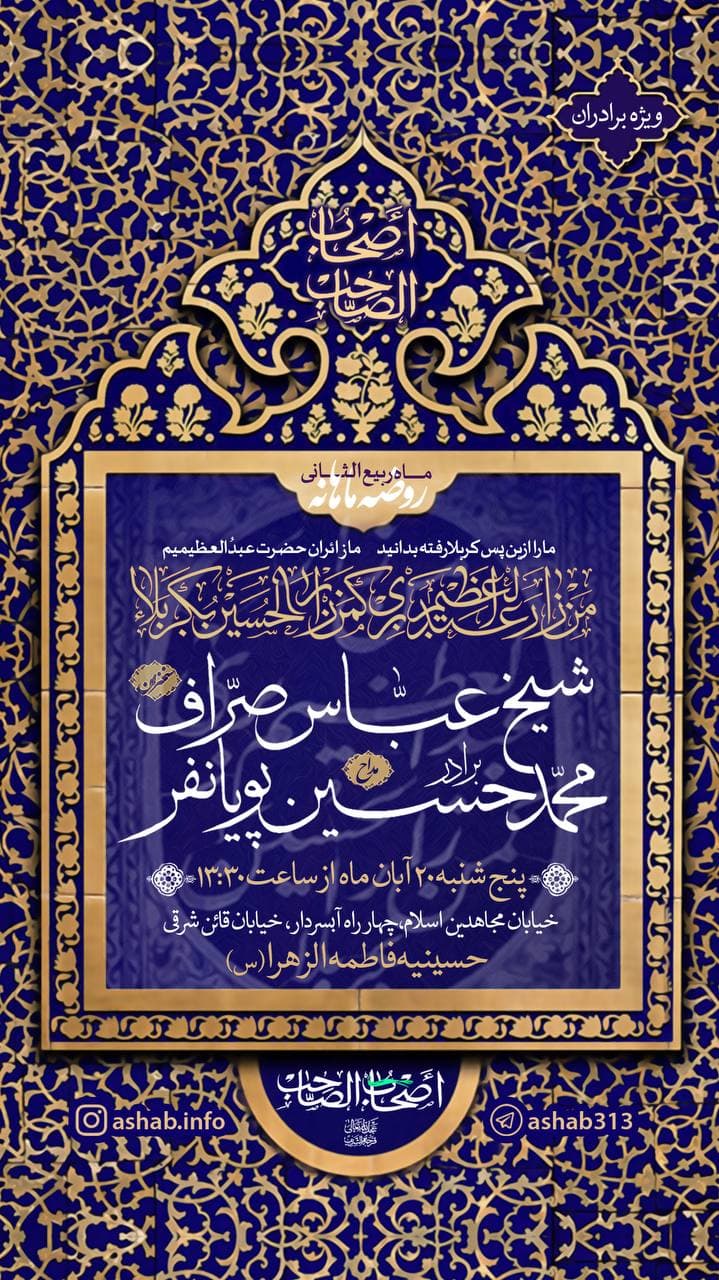 ویژه برادران
أصحاب
الصاحب
ماه ربیع الثانی
روضه ماهانه
ما را ازین پس کربلا رفته بدانید ما زائران حضرت عبدُالعظیمیم
من زار عبدالعظیم بری کمن زار الحسین بکربلاء
شیخ عبّاس صرّاف
سخنران
برادر
محمّدحسین پویانفر
مداح
پنج شنبه ۲۰ آبان ماه از ساعت ۱۳:۳۰
خیابان مجاهدین اسلام، چهار راه آبسردار، خیابان قائن شرقی
حسینیه فاطمه الزهرا (س)
أصحاب الصاحب
ashab.info
ashab313